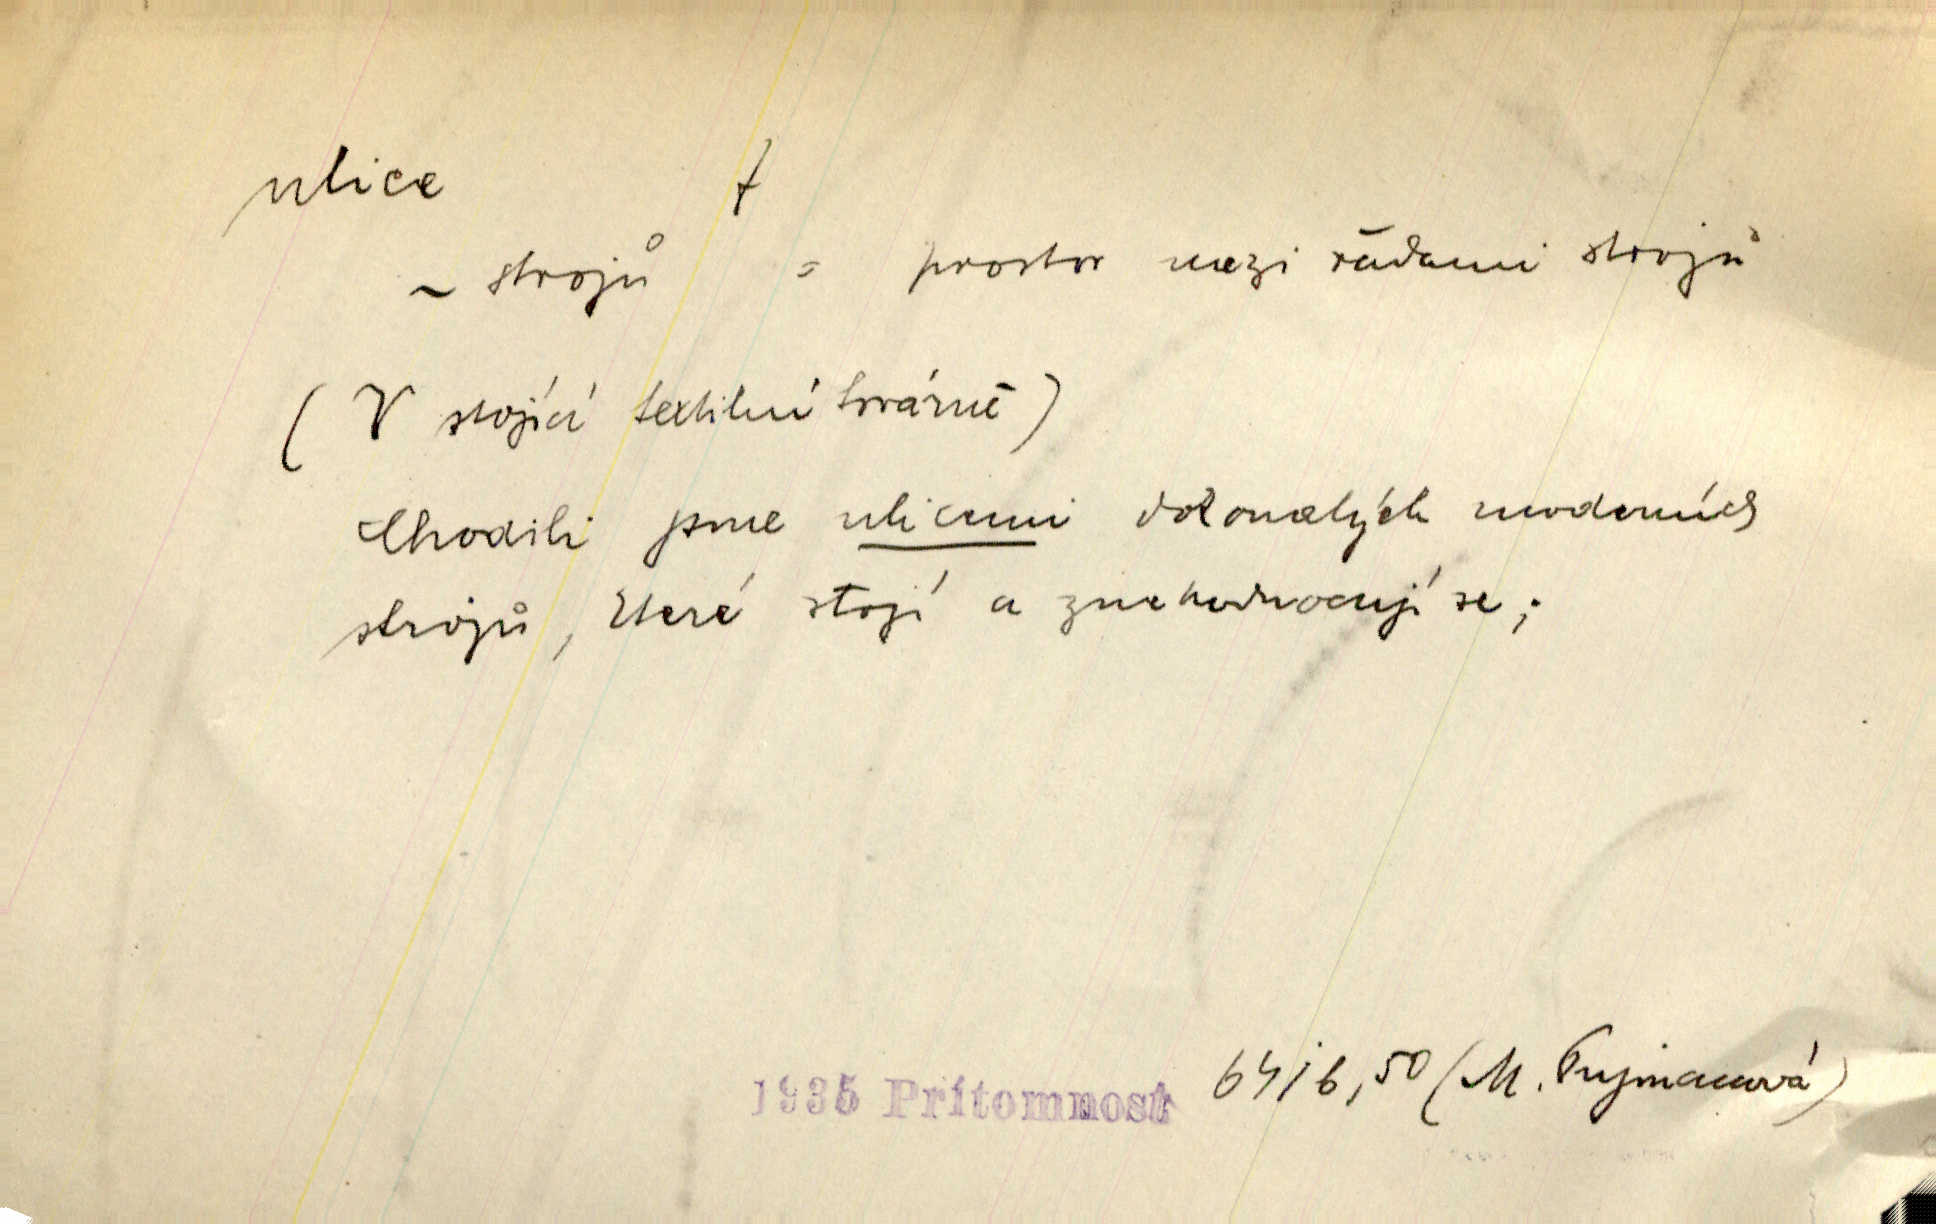 ulice f
~ strojů = prostor mezi řadami strojů
(V stojící textilní továrně)
Chodili jsme ulicemi dokonalých moderních
strojů, které stojí a znehodnocují se;
1935 Přítomnost 64/6,50 (M. Pujmanová)